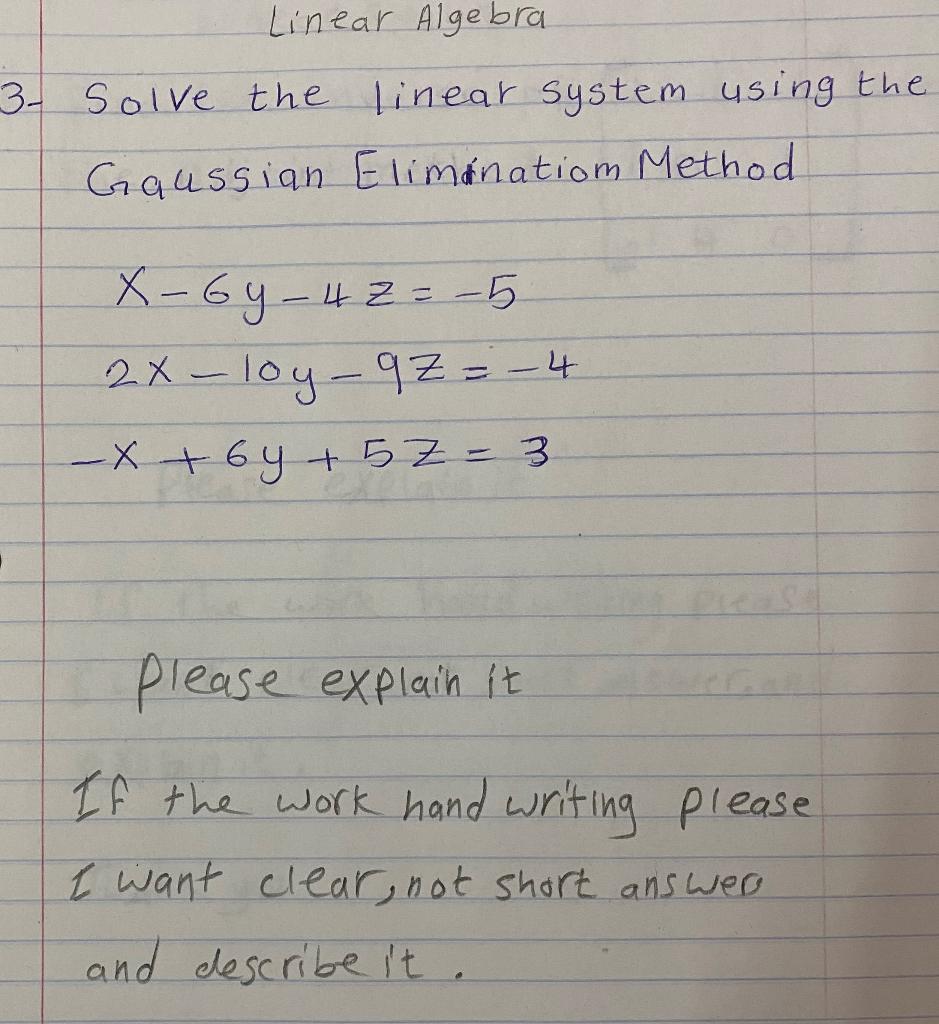 Linear Algebra
3- Solve the linear system using the
Gaussian Eliminatiom Method
x - 6y - 4z = -5
2x - 10y - 9z = -4
-x + 6y + 5z = 3
please explain it
If the work hand writing please
I want clear, not short answer
and describe it .